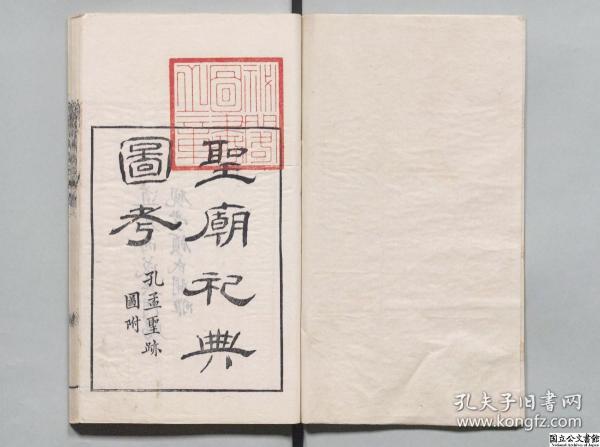 聖廟祀典
圖考
孔孟聖跡
圖附
孔夫子旧书网
kongfz.com
国立公文書館
National Archives of Japan